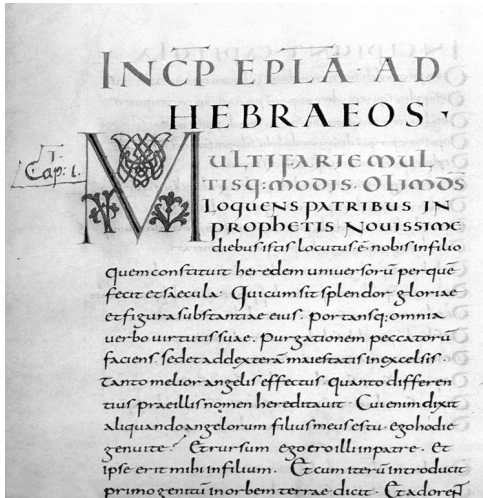 INCP EPLA· AD
HEBRAEOS·
1·
Cap: 1.
MULTIFARIE MUL
TISQ: MODIS· OLIM DS
LOQUENS PATRIBUS IN
PROPHETIS NOUISSIME
diebus istis locutus· ē· nobis in filio
quem constituit heredem uniuersorū per quē
fecit et saecula· Qui cum sit splendor gloriae
et figura substantiae eius· portansq; omnia
uerbo uirtutis suae· Purgationem peccatorū
faciens· sedet ad dexterā maiestatis in excelsis·
Tanto melior angelis effectus· quanto differen
tius prae illis nomen hereditauit· Cui enim dixit
aliquando angelorum filius meus es tu· ego hodie
genui te? Et rursum ego ero illi in patre· Et
ipse erit mihi in filium· Et cum iterū introducit
primogenitū in orbem terrae dicit· Et adorent